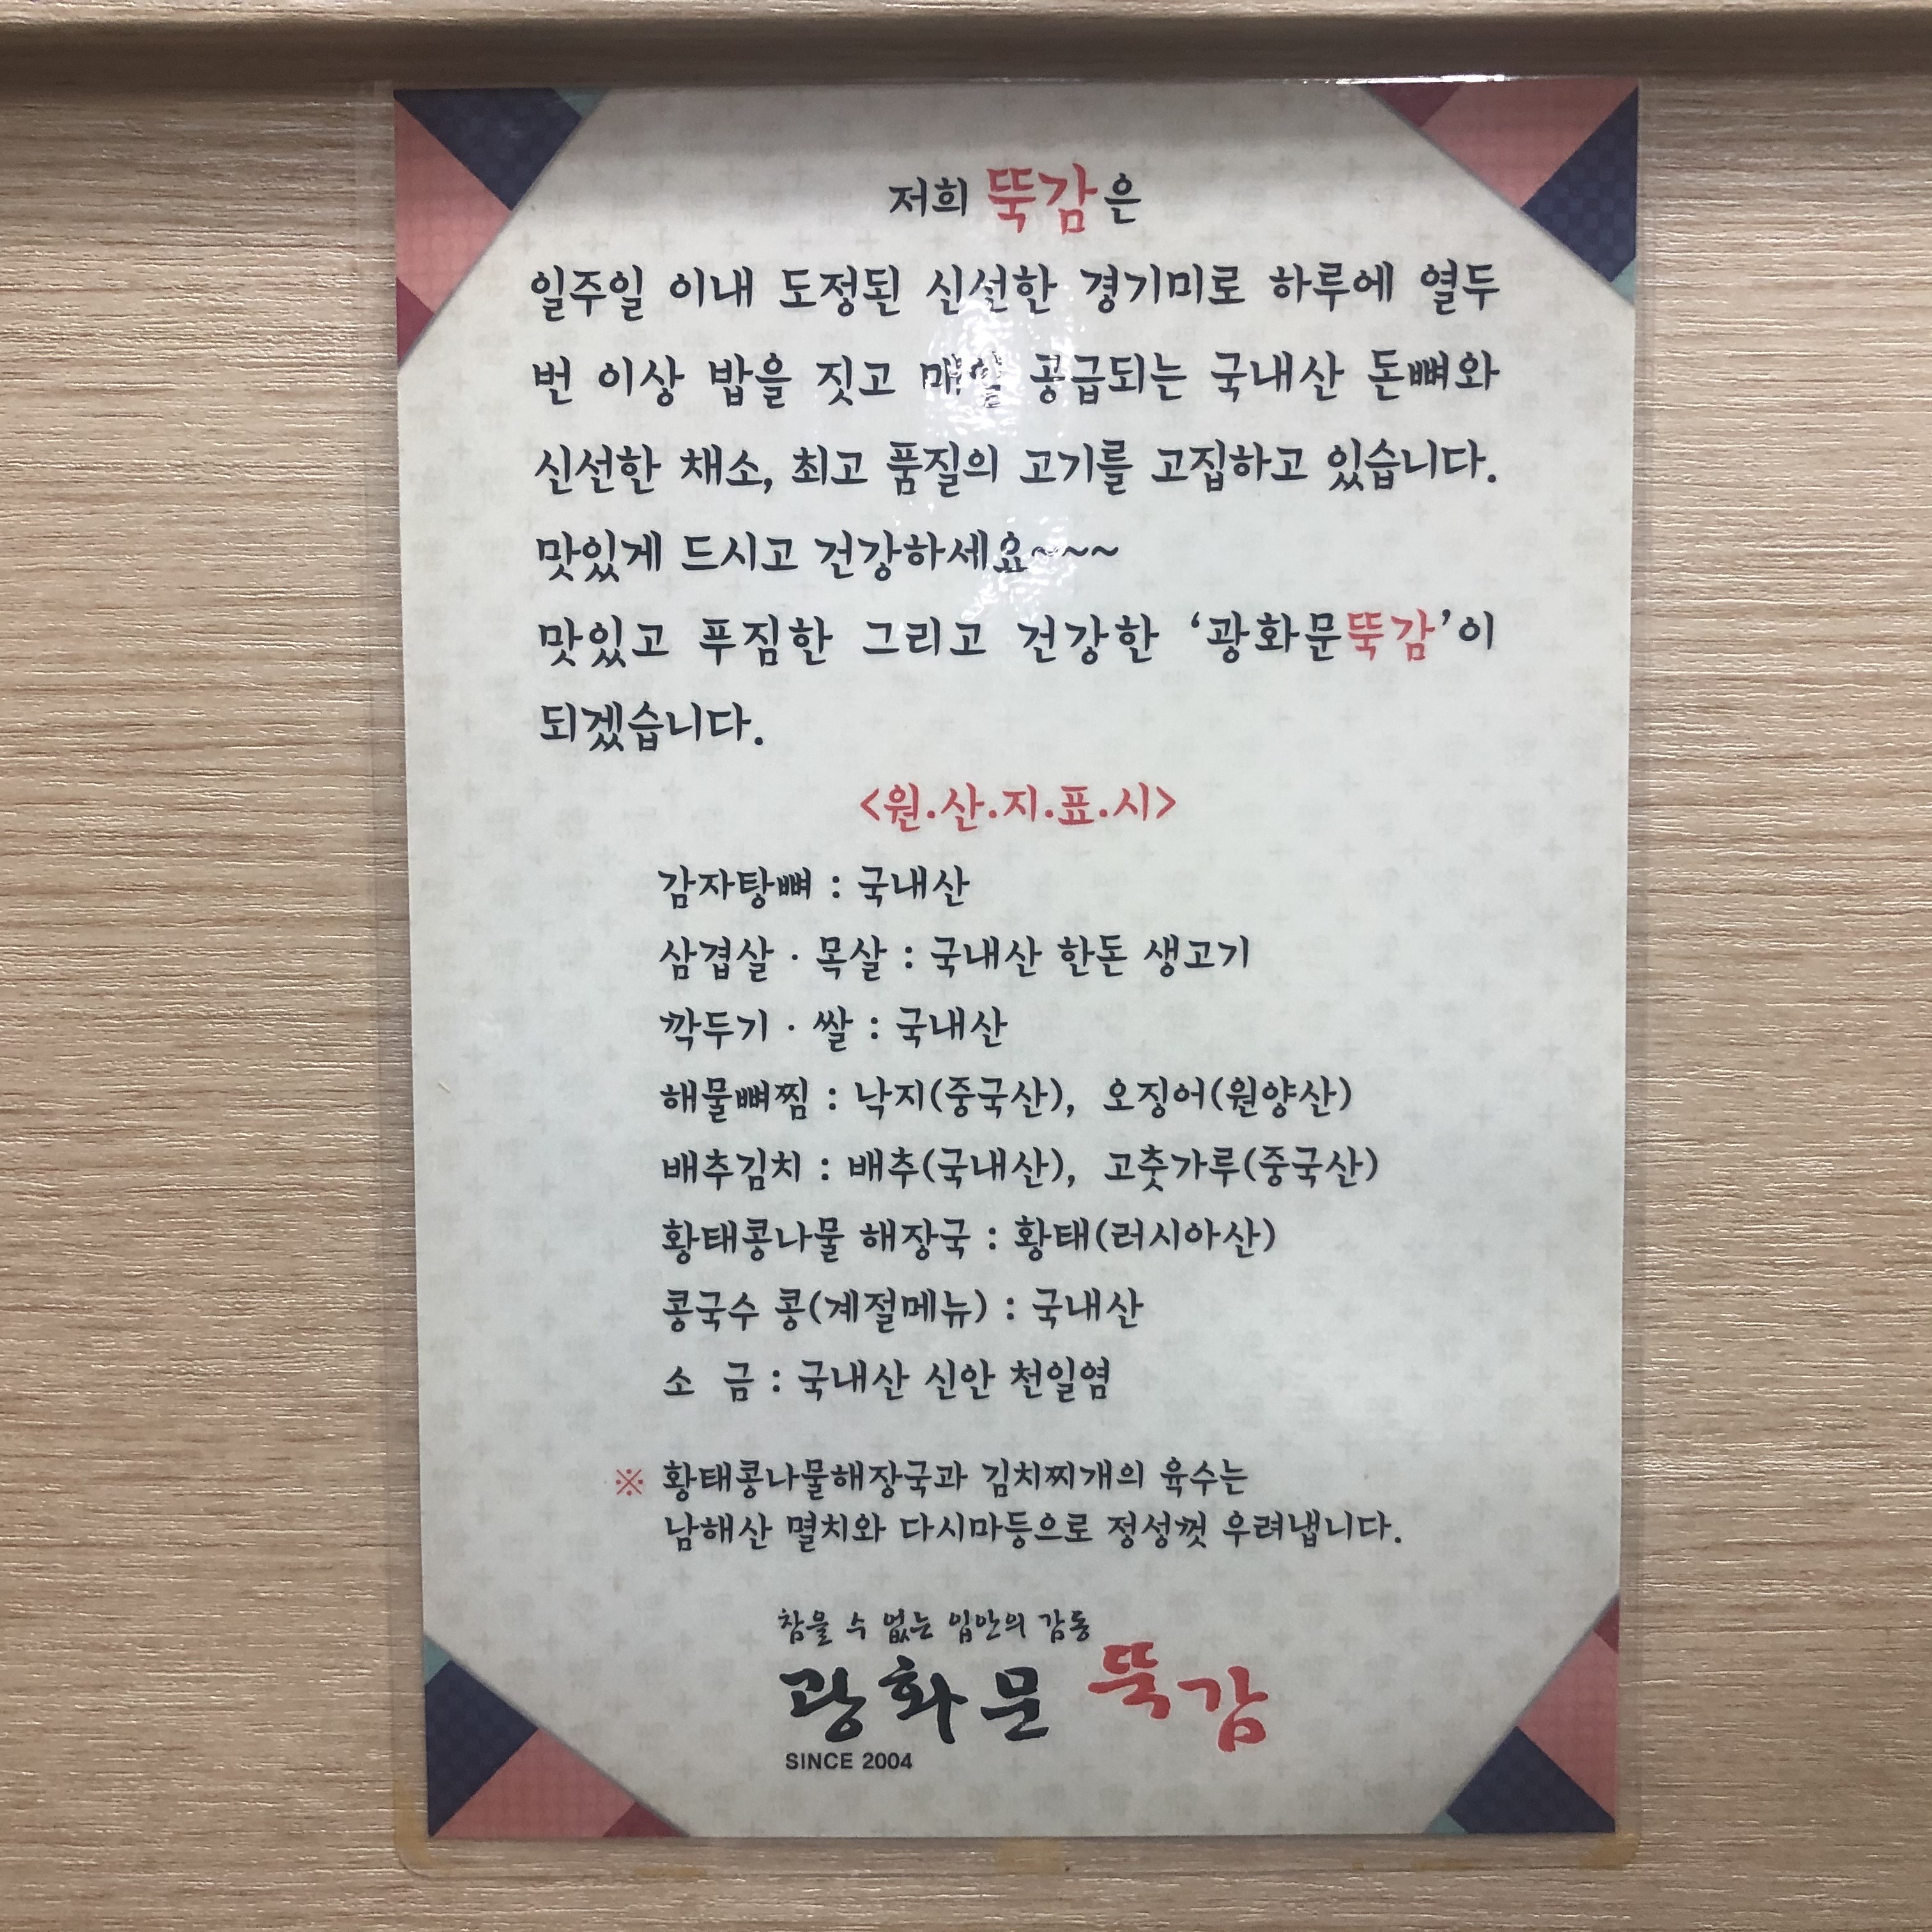 저희 뚝감은
일주일 이내 도정된 신선한 경기미로 하루에 열두
번 이상 밥을 짓고 매일 공급되는 국내산 돈뼈와
신선한 채소, 최고 품질의 고기를 고집하고 있습니다.
맛있게 드시고 건강하세요~~~
맛있고 푸짐한 그리고 건강한 ‘광화문뚝감’이
되겠습니다.
<원.산.지.표.시>
감자탕뼈 : 국내산
삼겹살 · 목살 : 국내산 한돈 생고기
깍두기 · 쌀 : 국내산
해물뼈찜 : 낙지(중국산), 오징어(원양산)
배추김치 : 배추(국내산), 고춧가루(중국산)
황태콩나물 해장국 : 황태(러시아산)
콩국수 콩(계절메뉴) : 국내산
소 금 : 국내산 신안 천일염
※ 황태콩나물해장국과 김치찌개의 육수는
남해산 멸치와 다시마등으로 정성껏 우려냅니다.
참을 수 없는 입안의 감동
광화문 뚝감
SINCE 2004